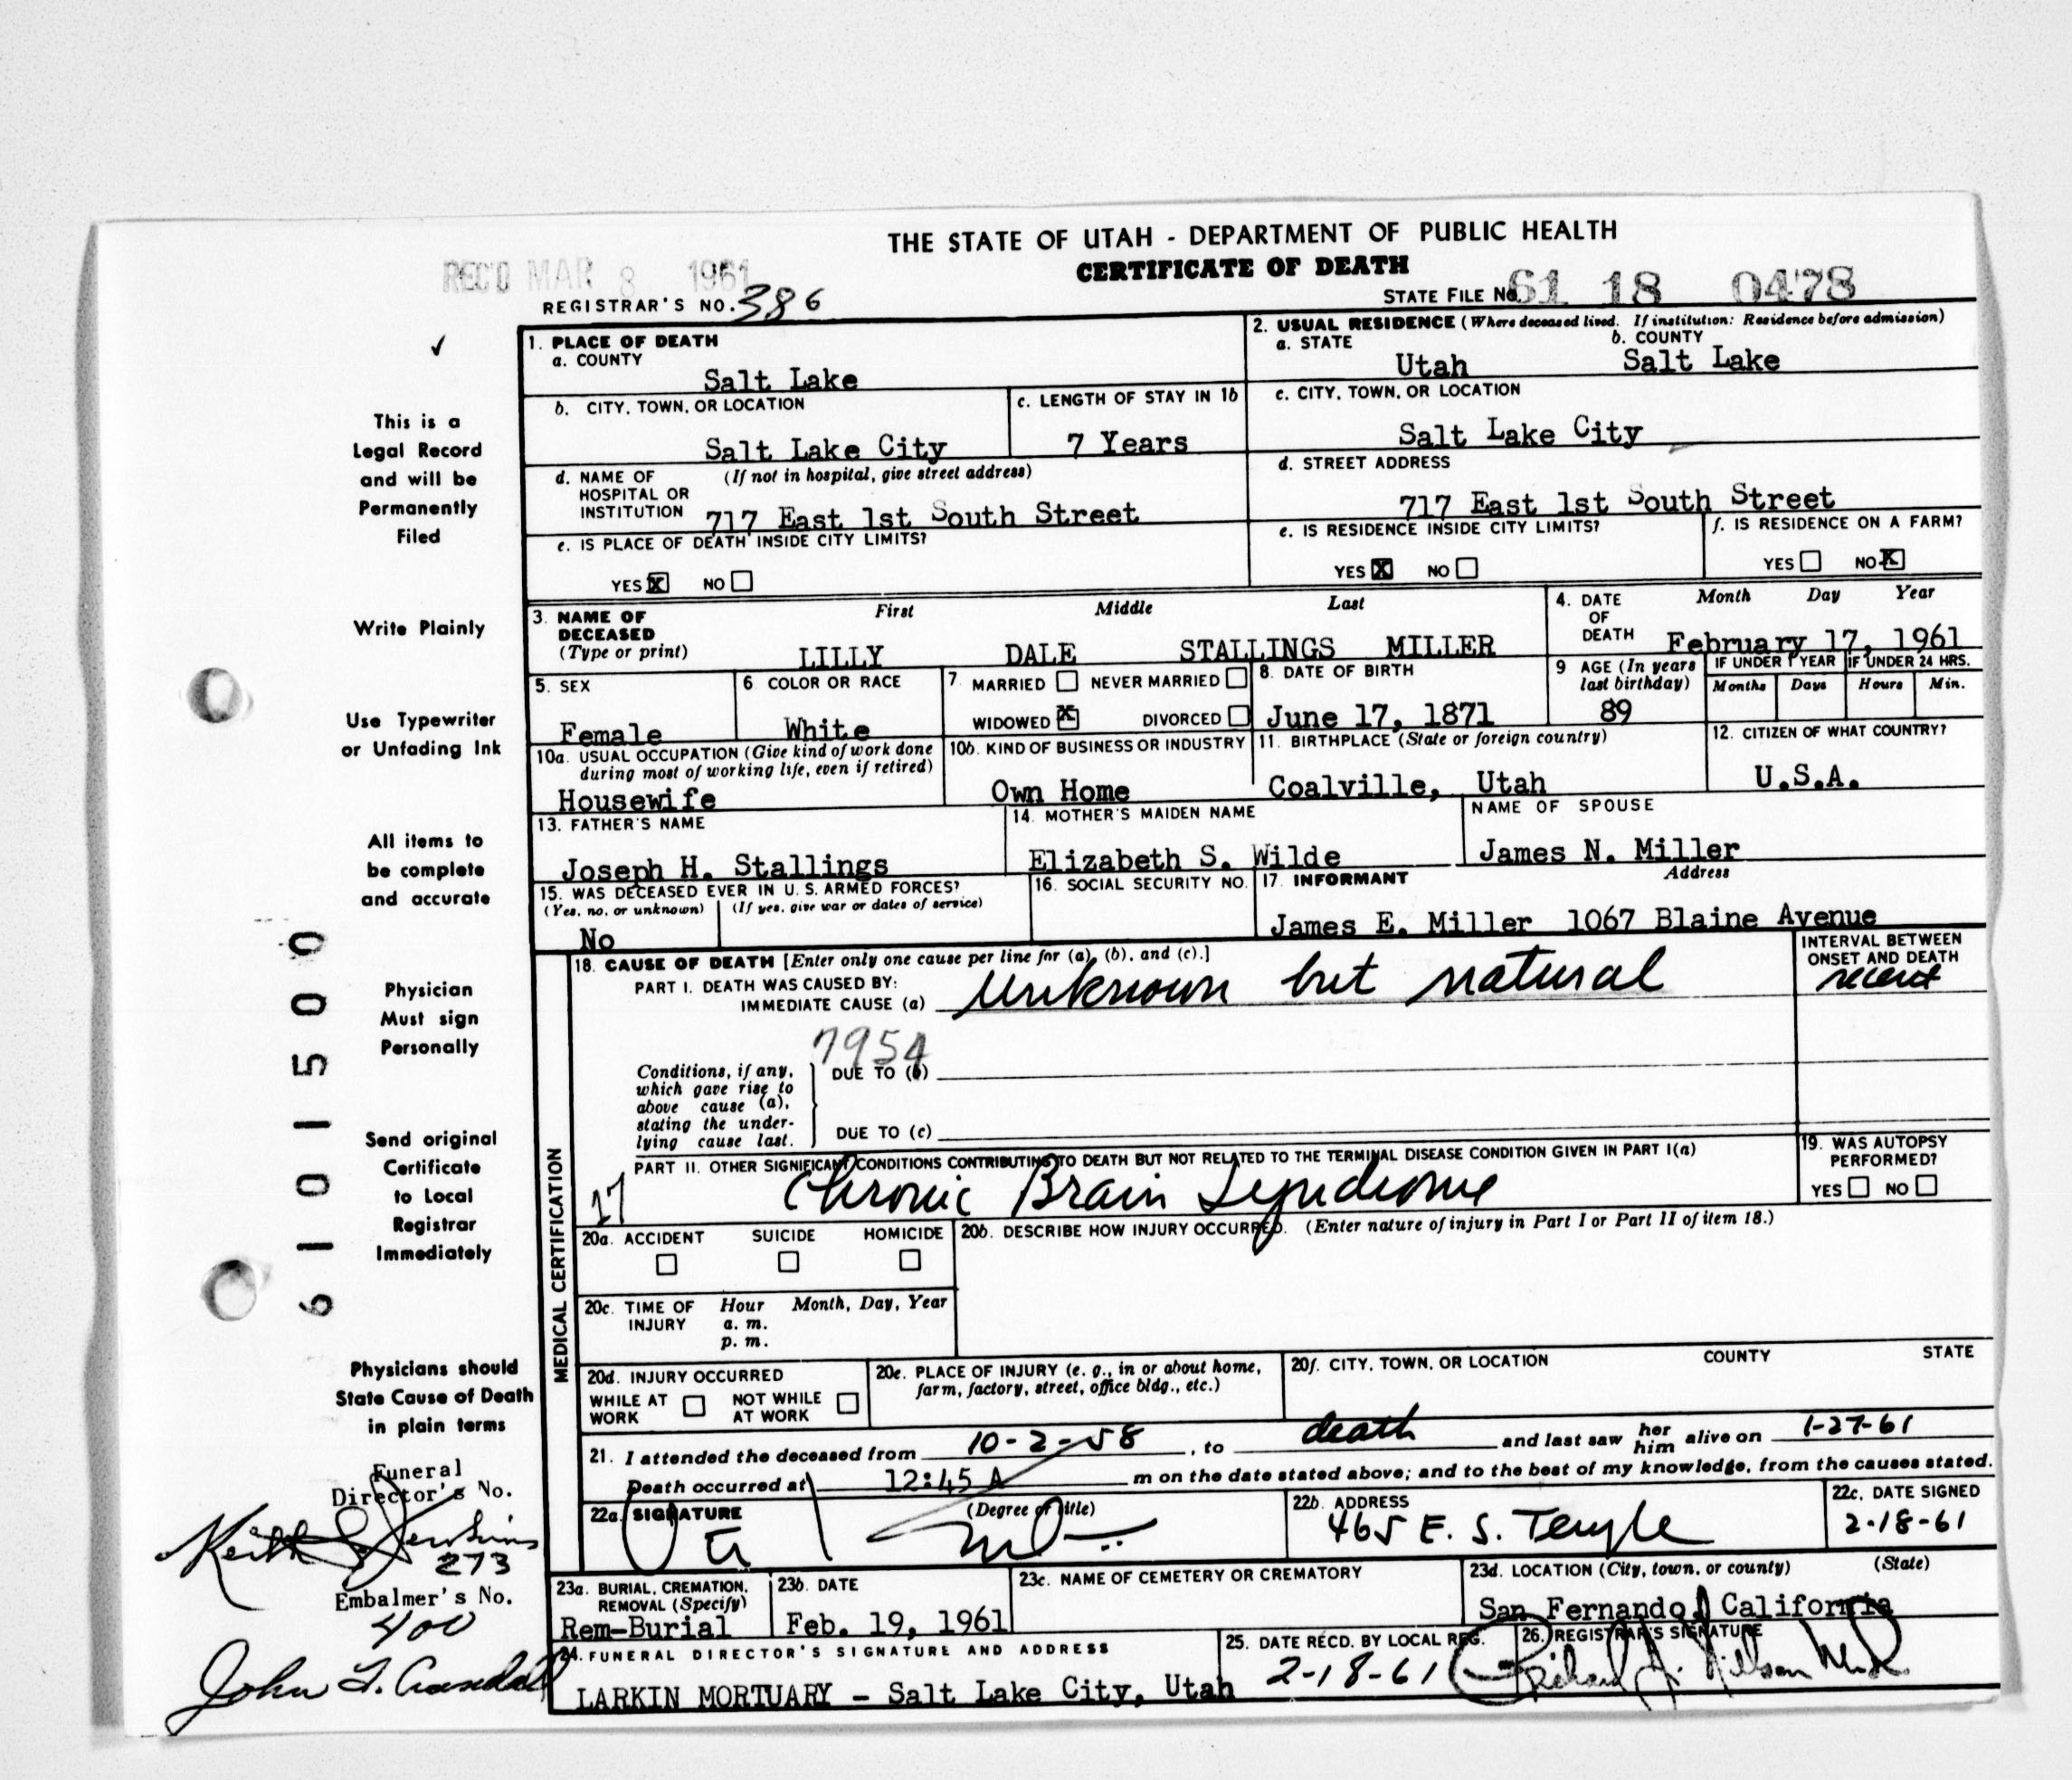 THE STATE OF UTAH - DEPARTMENT OF PUBLIC HEALTH
CERTIFICATE OF DEATH
REC'D MAR 8 1961
REGISTRAR'S NO. 386
STATE FILE NO. 61 18 0478
✓
This is a
Legal Record
and will be
Permanently
Filed
Write Plainly
Use Typewriter
or Unfading Ink
All items to
be complete
and accurate
Physician
Must sign
Personally
Send original
Certificate
to Local
Registrar
Immediately
Physicians should
State Cause of Death
in plain terms
6101500
Funeral
Director's No.
Keith S. Jenkins
273
Embalmer's No.
400
John
1. PLACE OF DEATH
a. COUNTY
Salt Lake
b. CITY, TOWN, OR LOCATION
Salt Lake City
c. LENGTH OF STAY IN 1b
7 Years
d. NAME OF HOSPITAL OR INSTITUTION (If not in hospital, give street address)
717 East 1st South Street
e. IS PLACE OF DEATH INSIDE CITY LIMITS?
YES X NO
2. USUAL RESIDENCE (Where deceased lived. If institution: Residence before admission)
a. STATE
Utah
b. COUNTY
Salt Lake
c. CITY, TOWN, OR LOCATION
Salt Lake City
d. STREET ADDRESS
717 East 1st South Street
e. IS RESIDENCE INSIDE CITY LIMITS?
YES X NO
f. IS RESIDENCE ON A FARM?
YES NO X
3. NAME OF DECEASED (Type or print)
First Middle Last
LILLY DALE STALLINGS MILLER
4. DATE OF DEATH
Month Day Year
February 17, 1961
5. SEX
Female
6 COLOR OR RACE
White
7. MARRIED NEVER MARRIED
WIDOWED X DIVORCED
8. DATE OF BIRTH
June 17, 1871
9 AGE (In years last birthday)
89
IF UNDER 1 YEAR
Months Days
IF UNDER 24 HRS.
Hours Min.
10a. USUAL OCCUPATION (Give kind of work done during most of working life, even if retired)
Housewife
10b. KIND OF BUSINESS OR INDUSTRY
Own Home
11. BIRTHPLACE (State or foreign country)
Coalville, Utah
12. CITIZEN OF WHAT COUNTRY?
U.S.A.
13. FATHER'S NAME
Joseph H. Stallings
14. MOTHER'S MAIDEN NAME
Elizabeth S. Wilde
NAME OF SPOUSE
James N. Miller
15. WAS DECEASED EVER IN U.S. ARMED FORCES?
(Yes, no, or unknown) (If yes, give war or dates of service)
No
16. SOCIAL SECURITY NO.
17. INFORMANT Address
James E. Miller 1067 Blaine Avenue
MEDICAL CERTIFICATION
18. CAUSE OF DEATH [Enter only one cause per line for (a), (b), and (c).]
PART I. DEATH WAS CAUSED BY:
IMMEDIATE CAUSE (a) Unknown but natural
INTERVAL BETWEEN ONSET AND DEATH
recent
7954
Conditions, if any, which gave rise to above cause (a), stating the underlying cause last.
DUE TO (b)
DUE TO (c)
PART II. OTHER SIGNIFICANT CONDITIONS CONTRIBUTING TO DEATH BUT NOT RELATED TO THE TERMINAL DISEASE CONDITION GIVEN IN PART I(a)
17 Chronic Brain Syndrome
19. WAS AUTOPSY PERFORMED?
YES NO
20a. ACCIDENT SUICIDE HOMICIDE
20b. DESCRIBE HOW INJURY OCCURRED. (Enter nature of injury in Part I or Part II of item 18.)
20c. TIME OF INJURY Hour Month, Day, Year
a. m.
p. m.
20d. INJURY OCCURRED
WHILE AT WORK NOT WHILE AT WORK
20e. PLACE OF INJURY (e. g., in or about home, farm, factory, street, office bldg., etc.)
20f. CITY, TOWN, OR LOCATION COUNTY STATE
21. I attended the deceased from 10-2-58, to death and last saw her him alive on 1-27-61
Death occurred at 12:45 A m on the date stated above; and to the best of my knowledge, from the causes stated.
22a. SIGNATURE (Degree or title)
22b. ADDRESS
465 E. S. Temple
22c. DATE SIGNED
2-18-61
23a. BURIAL, CREMATION, REMOVAL (Specify)
Rem-Burial
23b. DATE
Feb. 19, 1961
23c. NAME OF CEMETERY OR CREMATORY
23d. LOCATION (City, town, or county) (State)
San Fernando, California
24. FUNERAL DIRECTOR'S SIGNATURE AND ADDRESS
LARKIN MORTUARY - Salt Lake City, Utah
25. DATE RECD. BY LOCAL REG.
2-18-61
26. REGISTRAR'S SIGNATURE